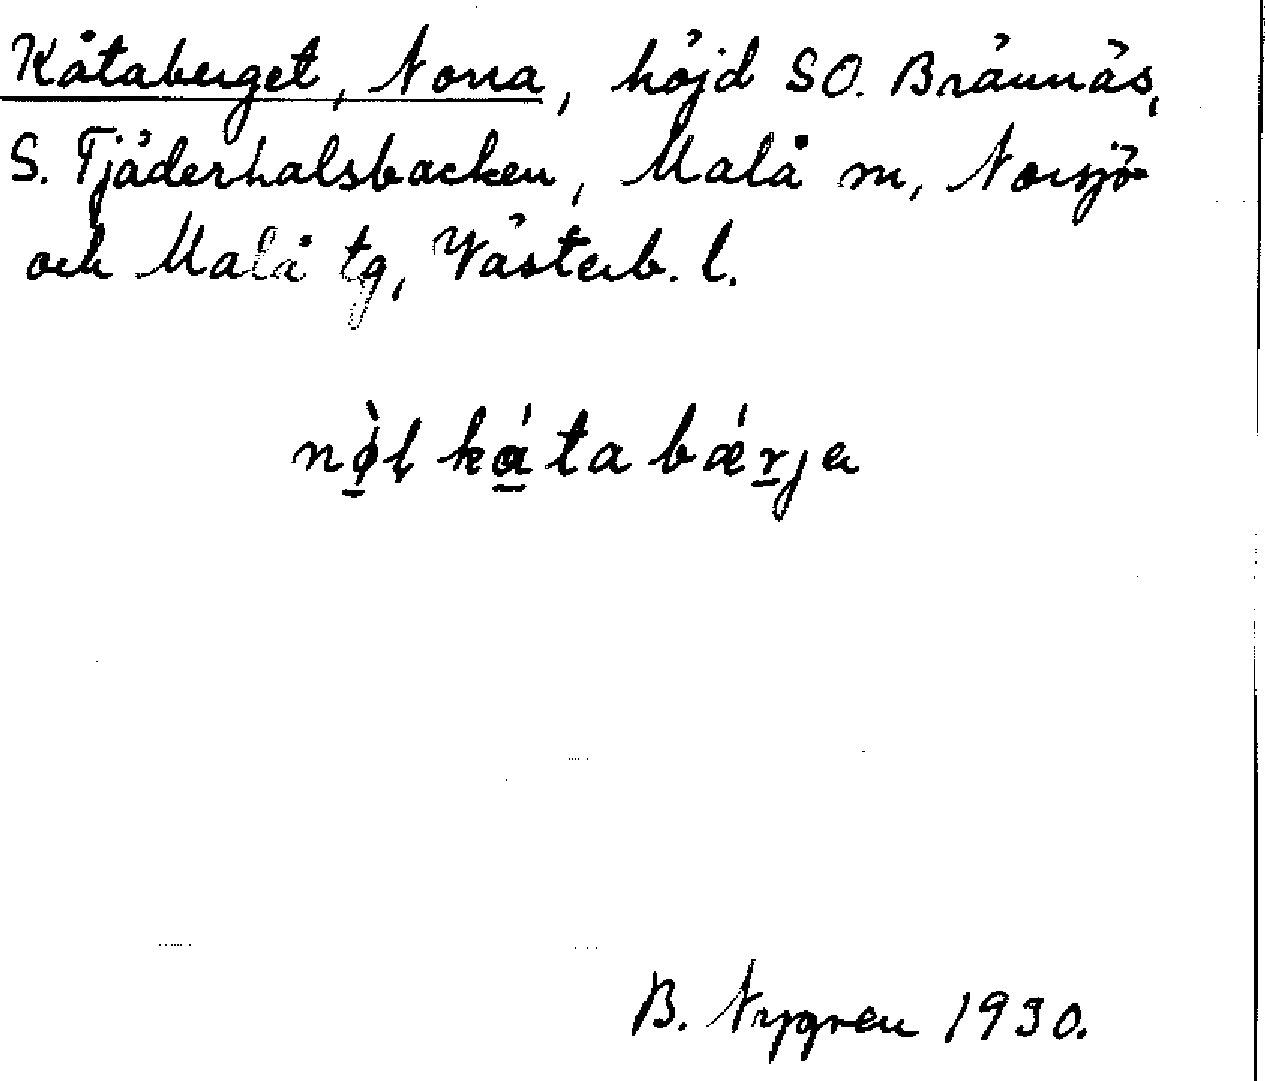 Kåtaberget, Norra, höjd SO. Brännäs,
S. Tjäderhalsbacken, Malå m, Norsjö
och Malå tg, Västerb. l.
nø̠̀l ká̠ta bǽr̠ja
B. Nygren 1930.